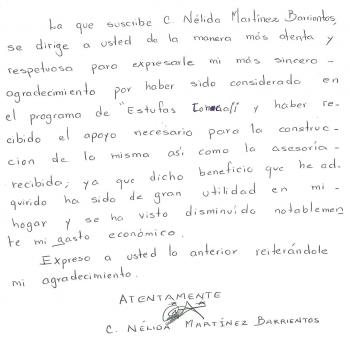 La que suscribe C. Nélida Martínez Barrientos,
se dirige a usted de la manera más atenta y
respetuosa para expresarle mi más sincero -
agradecimiento por haber sido considerada en
el programa de "Estufas y haber re-
cibido el apoyo necesario para la construc-
cion de la misma así como la asesoría -
recibida; ya que dicho beneficio que he ad.
quirido ha sido de gran utilidad en mi -
hogar y se ha visto disminuído notablemen
te mi gasto económico.
Expreso a usted lo anterior reiterándole
mi agradecimiento.
ATENTAMENTE
C. NÉLIDA MARTÍNEZ BARRIENTOS